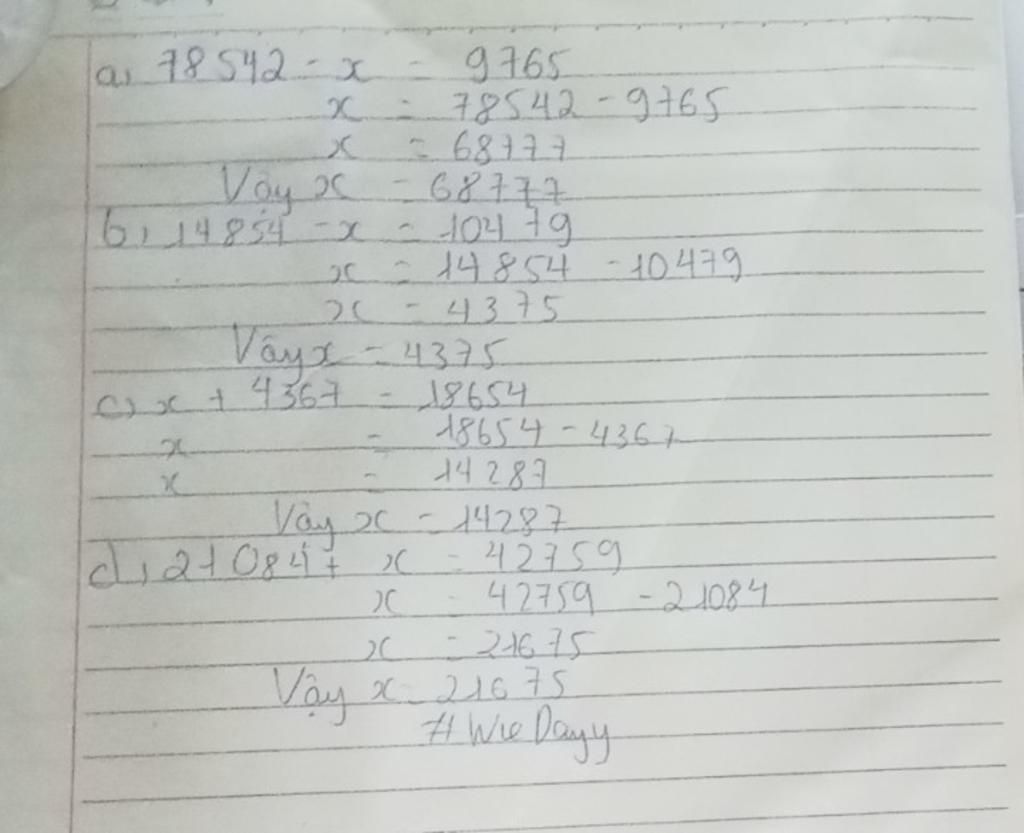 a, 78542 - x = 9765
x = 78542 - 9765
x = 68777
Vậy x = 68777
b, 14854 - x = 10479
x = 14854 - 10479
x = 4375
Vậy x = 4375
c, x + 4367 = 18654
x = 18654 - 4367
x = 14287
Vây x = 14287
d, 21084 + x = 42759
x = 42759 - 21084
x = 21675
Vậy x = 21675
#WieDayy